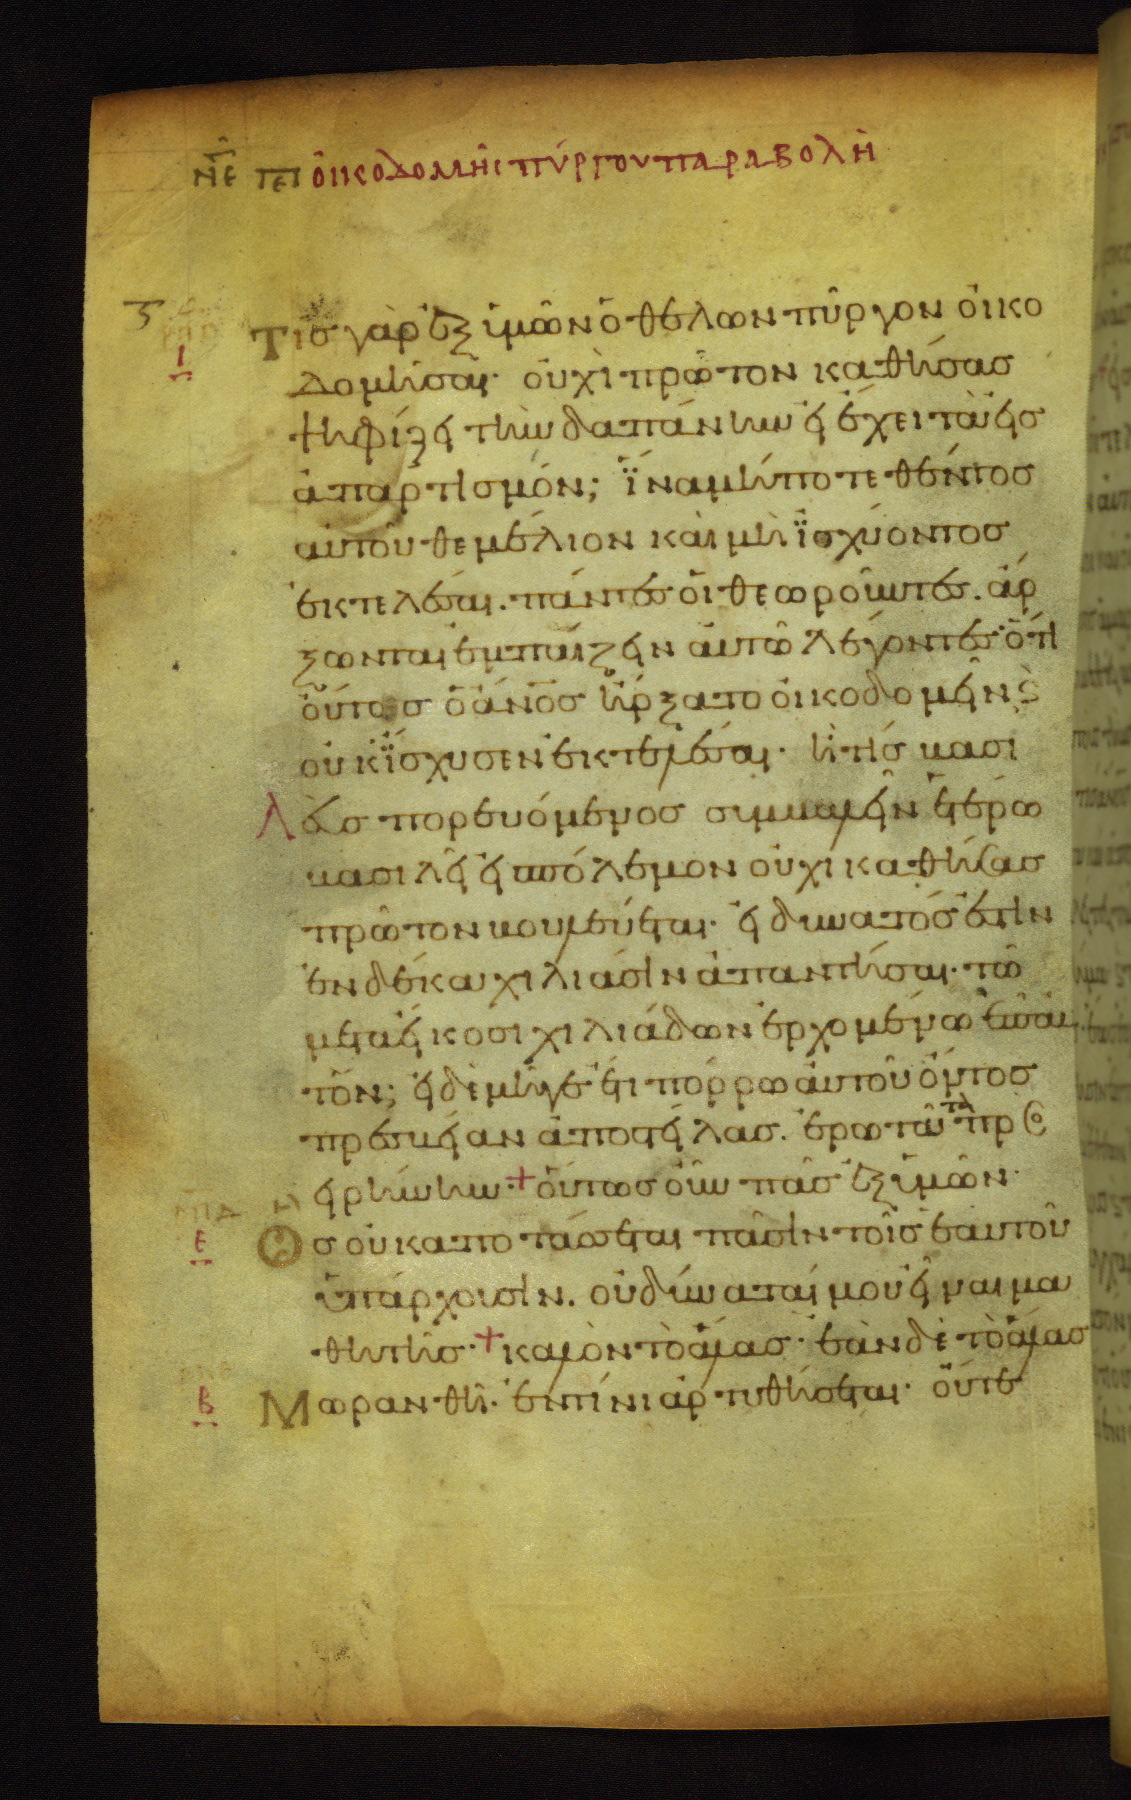 ν̅ε̅ περὶ ὀικοδομῆς πύργου παραβολὴ
Τίσ γὰρ ἐξ ὑμῶν ὁ θέλων πῦργον ὀικο
δομῆσαι· οὐχὶ πρῶτον καθήσασ
ψηφίζει τὴν δαπάνην ει ἔχει τὰ εισ
ἀπαρτισμόν; ἵνα μήποτε θέντοσ
αὐτοῦ θεμέλιον καὶ μὴ ϊσχύοντοσ
ἐκτελέσαι. πάντεσ ὁι θεωροῦντεσ. ἄρ
ξωνται ἐμπαίζειν αὐτῶ λέγοντεσ· ὅτι
οὗτοσ ὁ ἄνο̅σ ἤρξατο ὀικοδομεῖν κ
οὐκ ϊσχυσεν ἐκτελέσαι· ἢ τίσ βασι
Λεὺσ πορευόμενοσ συμβαλεῖν ἑτέρω
βασιλεῖ εἰσ πόλεμον οὐχὶ καθήσασ
πρῶτον βουλεύεται· εἰ δυνατόσ ἐστιν
ἐν δέκα χιλιάσιν ἀπαντῆσαι· τῶ
μετὰ εἴκοσι χιλιάδων ἐρχομένω ἐπ' αὐ
τόν; εἰ δὲ μήγε ἔτι πόρρω αὐτοῦ ὄντοσ
πρεσβείαν ἀποστείλασ. ἐρωτᾶ τὰ πρὸσ
εἰρήνην· + οὕτωσ οὖν πᾶσ ἐξ ὑμῶν·
Ε Οσ οὐκ ἀποτάσσεται πᾶσιν τοῖσ ἑαυτοῦ
ὑπάρχουσιν. οὐ δύναταί μου εἶναι μα
θητήσ· + καλὸν τὸ ἅλασ· ἐὰν δὲ τὸ ἅλασ
Β Μωρανθῆ· ἐν τίνι ἀρτυθήσεται· οὔτε